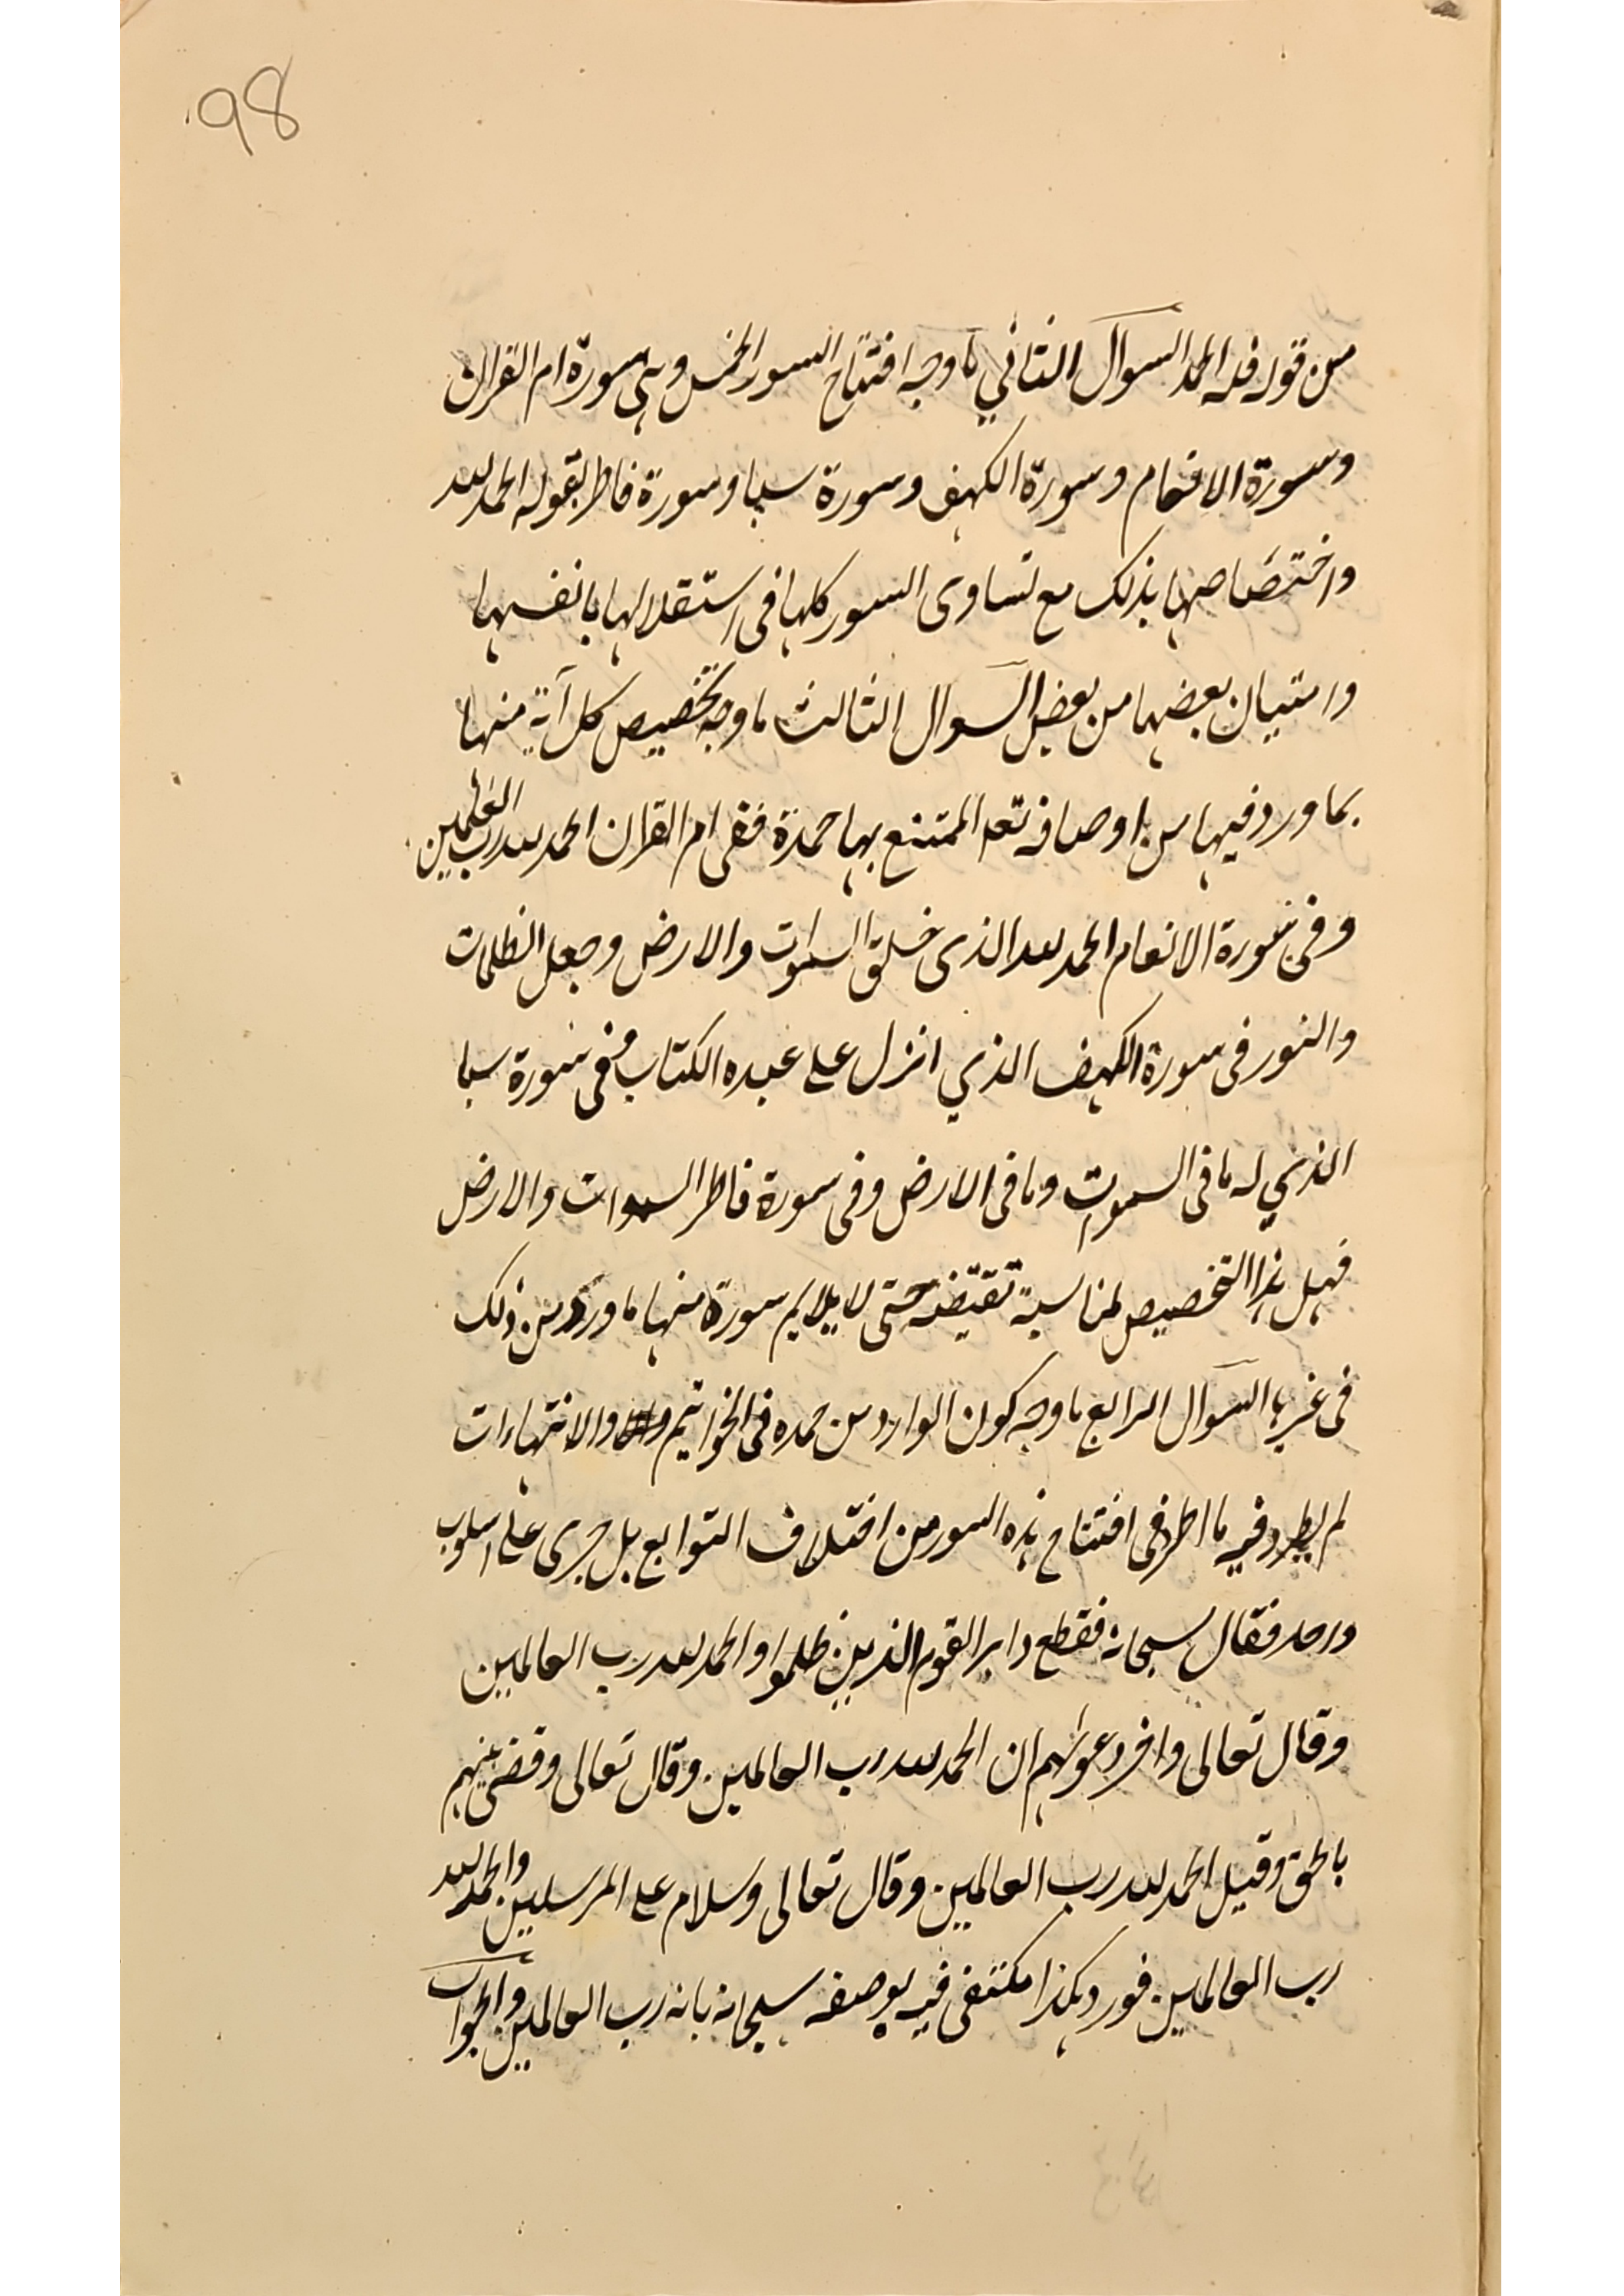 98
من قوله فله الحمد السوال الثاني ما وجه افتتاح السور الخمس وهى سورة ام القران
وسورة الانعام وسورة الكهف وسورة سبا وسورة فاطر بقوله الحمد لله
واختصاصها بذلك مع تساوى السور كلها فى استقلالها بانفسها
وامتيان بعضها من بعض السوال الثالث ما وجه تخصيص كل آية منها
بما ورد فيها من اوصافه تعه الممتنع بها حمدة ففى ام القران الحمد لله رب العلمين
وفى سورة الانعام الحمد لله الذى خلق السموات والارض وجعل الظلمات
والنور فى سورة الكهف الذي انزل على عبده الكتاب وفى سورة سبا
الذي له ما فى السموات وما فى الارض وفى سورة فاطر السموات والارض
فهل هذا التخصيص لمناسبة تقتضه حتى لا يلايم سورة منها ما ورد من ذلك
فى غيرها السوال الرابع ما وجه كون الوارد من حمده فى الخواتيم والانتهاءات
لم يطرد فيه ما اطرد فى افتتاح هذه السور من اختلاف التوابع بل جرى على اسلوب
واحد فقال سبحانه فقطع دابر القوم الذين ظلموا والحمد لله رب العالمين
وقال تعالى واخر دعوٰهم ان الحمد لله رب العالمين وقال تعالى وقضى بينهم
بالحق وقيل الحمد لله رب العالمين وقال تعالى وسلام على المرسلين والحمد لله
رب العالمين فورد هكذا مكتفى فيه بوصفه سبحانه بانه رب العالمين والجواب